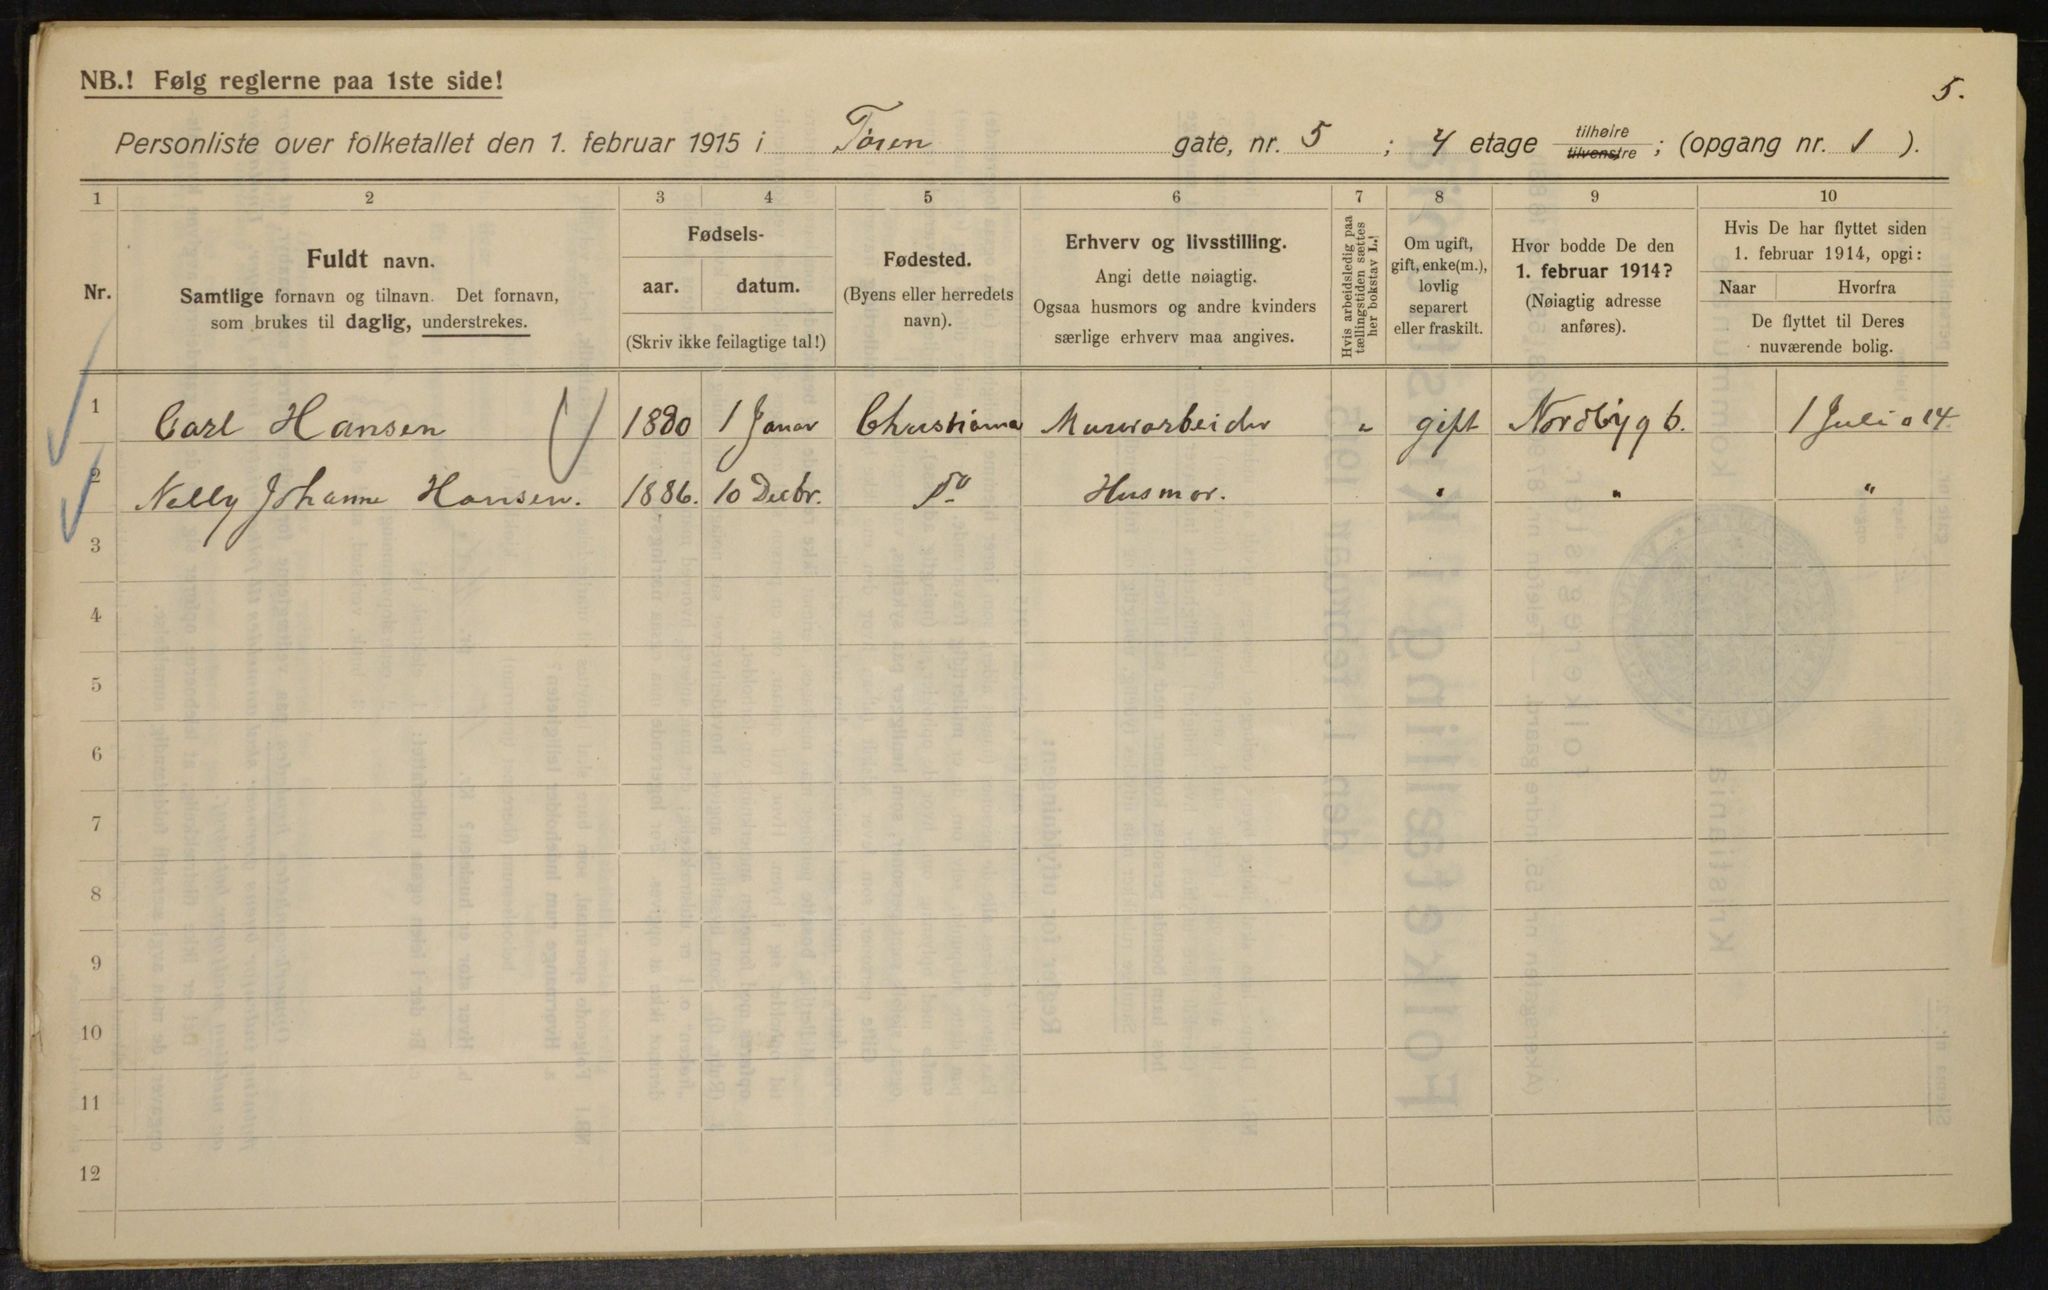 5.
NB.! Følg reglerne paa 1ste side!
Personliste over folketallet den 1. februar 1915 i Tøien gate, nr. 5 ; 4 etage tilhøire tilvenstre ; (opgang nr. 1 ).
1 2 3 4 5 6 7 8 9 10
Nr.
Fuldt navn.
Samtlige fornavn og tilnavn. Det fornavn,
som brukes til daglig, understrekes.
Fødsels-
aar. datum.
(Skriv ikke feilagtige tal!)
Fødested.
(Byens eller herredets
navn).
Erhverv og livsstilling.
Angi dette nøiagtig.
Ogsaa husmors og andre kvinders
særlige erhverv maa angives.
Hvis arbeidsledig paa
tællingstiden sættes
her bokstav L.!
Om ugift,
gift, enke(m.),
lovlig
separert
eller fraskilt.
Hvor bodde De den
1. februar 1914?
(Nøiagtig adresse
anføres).
Hvis De har flyttet siden
1. februar 1914, opgi:
Naar Hvorfra
De flyttet til Deres
nuværende bolig.
1 Carl Hansen 1880 1 Januar Christiania Murarbeider " gift Nordbyg 6. 1 Juli 14
2 Nelly Johanne Hansen. 1886. 10 Decbr. do Husmor. " " "
3
4
5
6
7
8
9
10
11
12